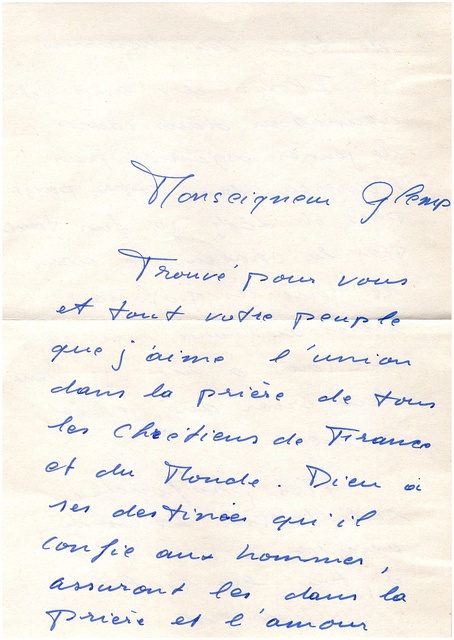 Monseigneur Glemp
Trouvé pour vous
et tout votre peuple
que j'aime l'union
dans la prière de tous
les chrétiens de France
et du Monde. Dieu a
ses destinées qu'il
confie aux hommes,
assuront les dans la
prière et l'amour